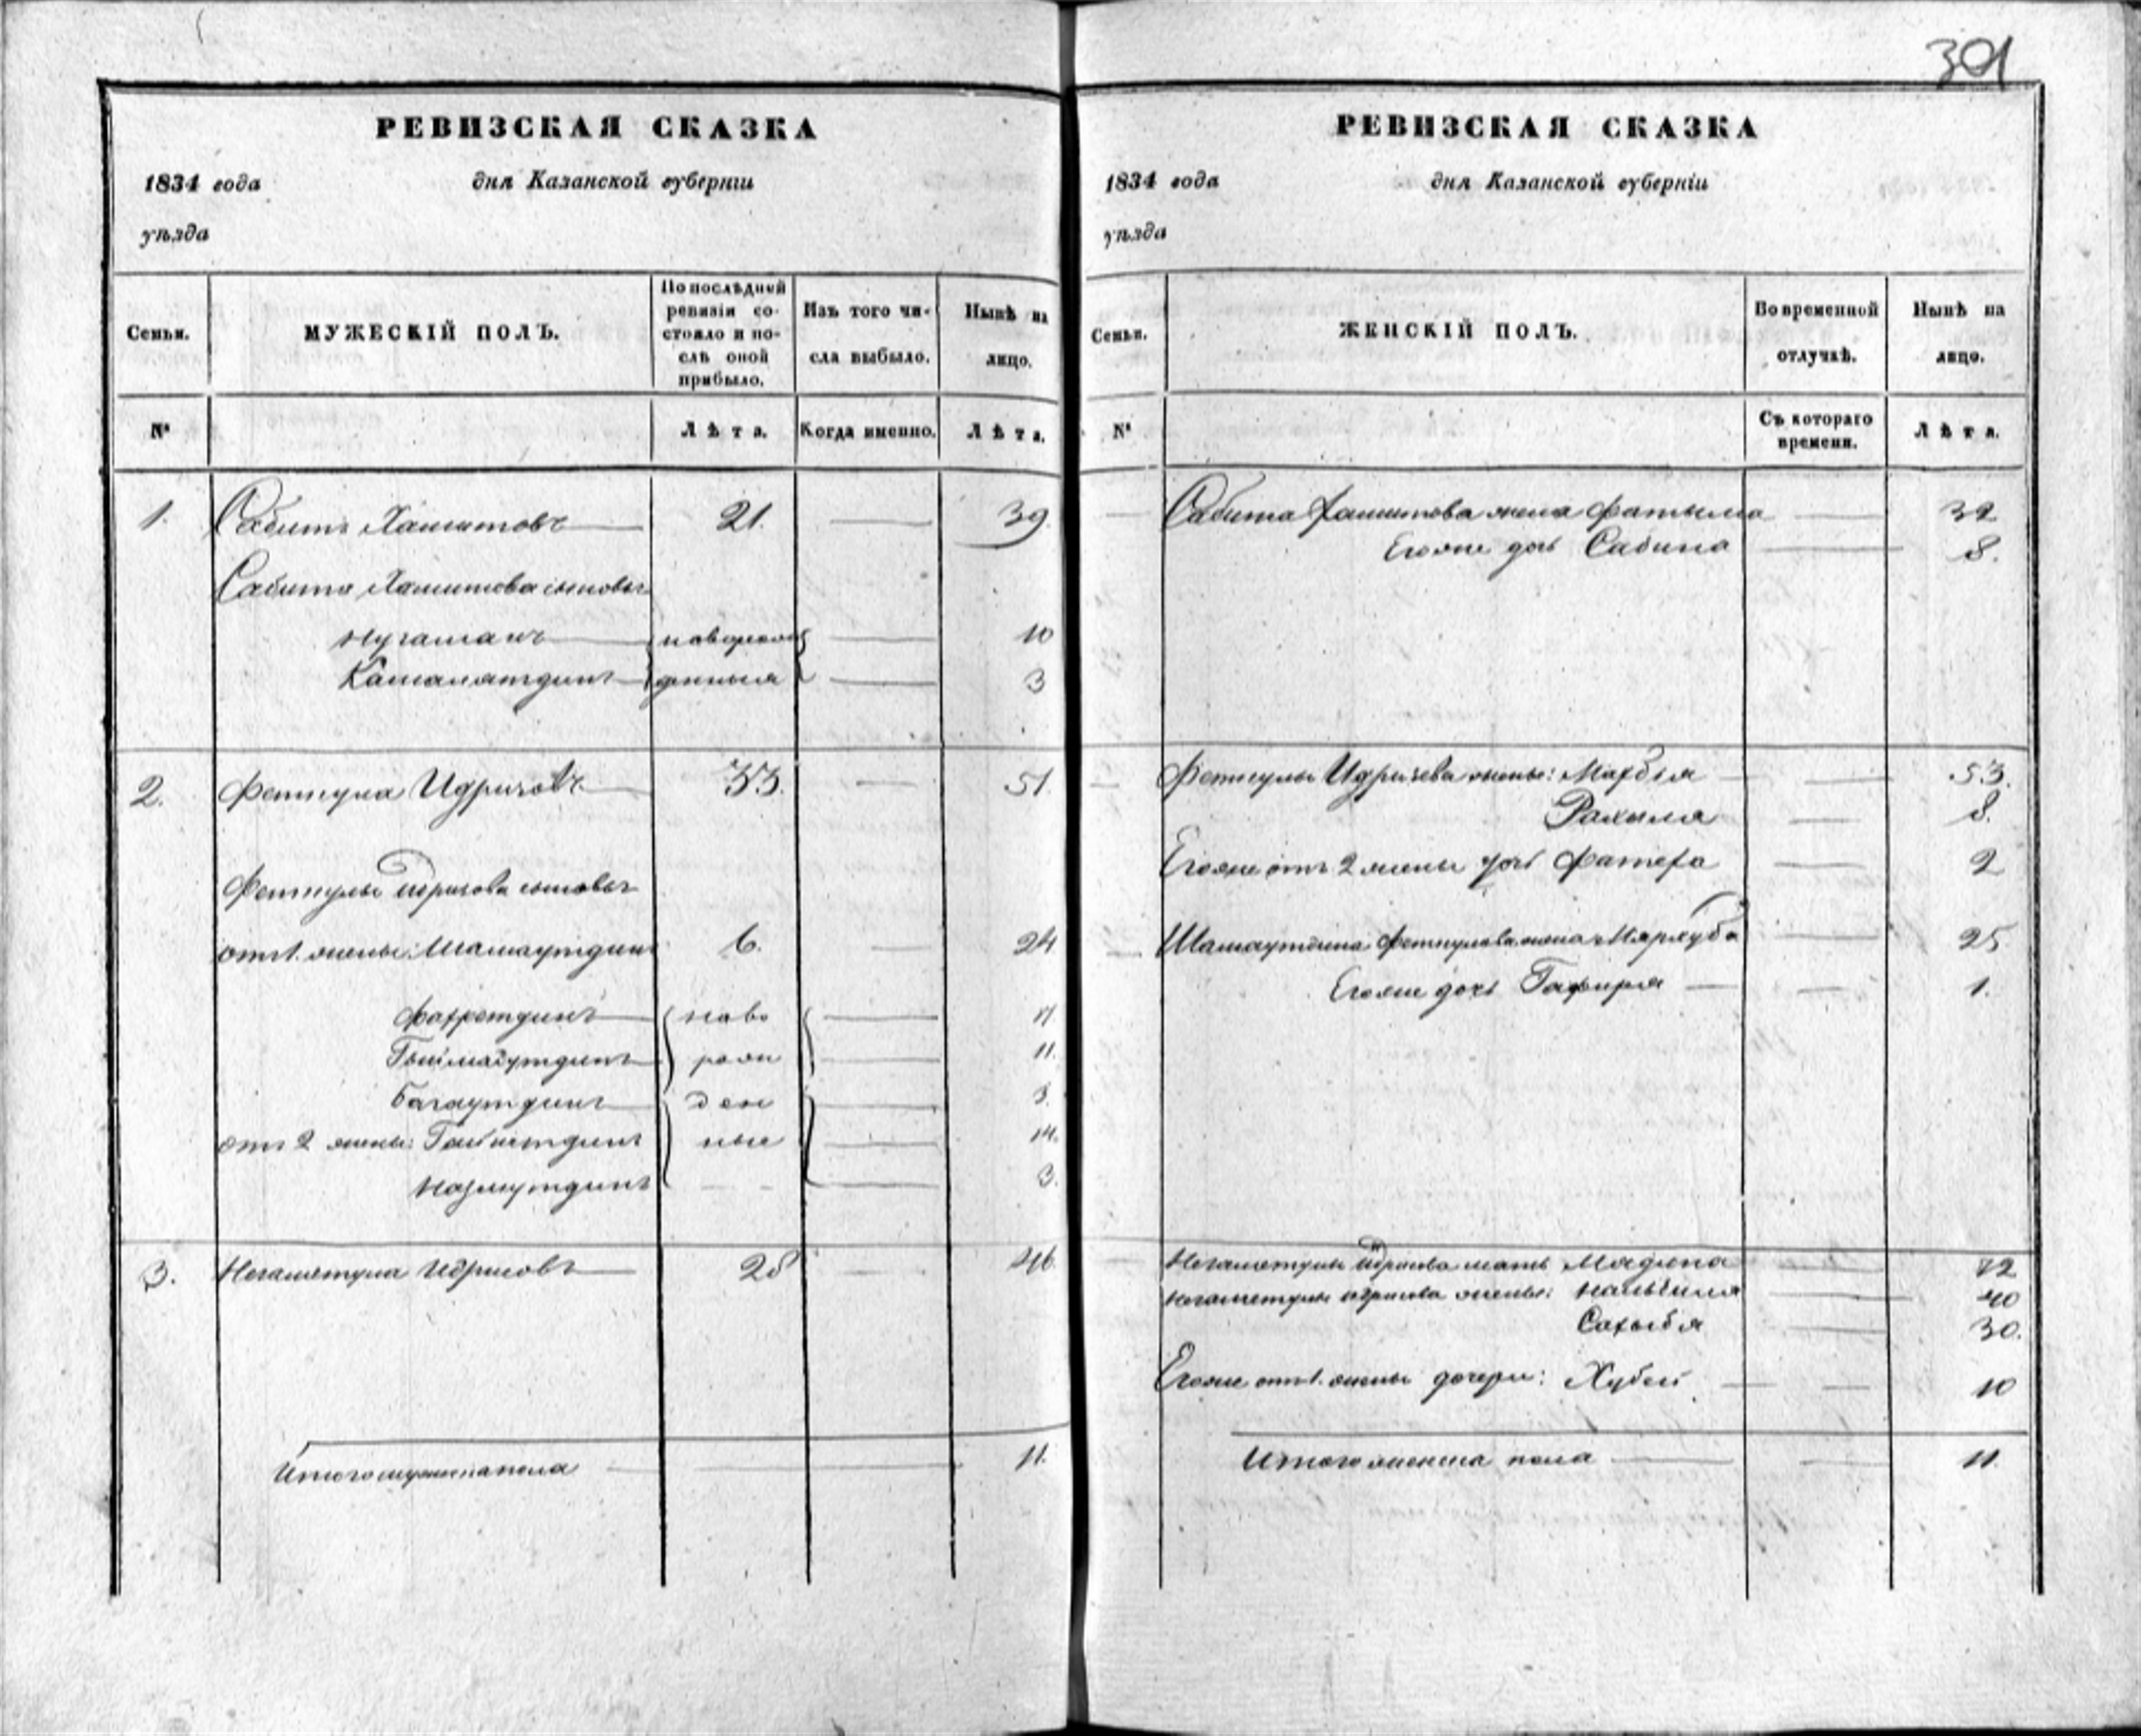 301
РЕВИЗСКАЯ СКАЗКА
1834 года дня Казанской губерніи
уѣзда
Семьи.
МУЖЕСКІЙ ПОЛЪ.
По послѣдней ревизіи состояло и послѣ оной прибыло.
Изъ того числа выбыло.
Нынѣ на лицо.
№
Лѣта.
Когда именно.
Лѣта.
1. Сабитъ Хамитовъ 21. 39
Сабита Хамитова сыновья
новорож
10
денныя 3
2. Феткула Идрисовъ 33. 51.
Феткулы Идрисова сыновья
от 1. жены: Шамаутдинъ 6. 24
Фахретдинъ ново
рож 11.
Багаутдинъ ден
от 2 жены: ные 14.
3.
3. Идрисовъ 28 46.
Итого мужеска пола 11.
РЕВИЗСКАЯ СКАЗКА
1834 года дня Казанской губерніи
уѣзда
Семьи.
ЖЕНСКІЙ ПОЛЪ.
Во временной отлучкѣ.
Нынѣ на лицо.
№
Съ котораго времени.
Лѣта.
Сабита Хамитова жена Фатыма 32
Егоже дочь Сабина 8.
Феткулы Идрисова жены: 53.
Рахиля 8.
Егоже от 2 жены дочь 2
Шамаутдина Феткулова жена 25
Егоже дочь Гафиря 1.
Идрисова мать Мадина 72
Идрисова жены: 40
Сахыбя 30.
Егоже от 1. жены дочери: Хубей 10
Итого женска пола 11.